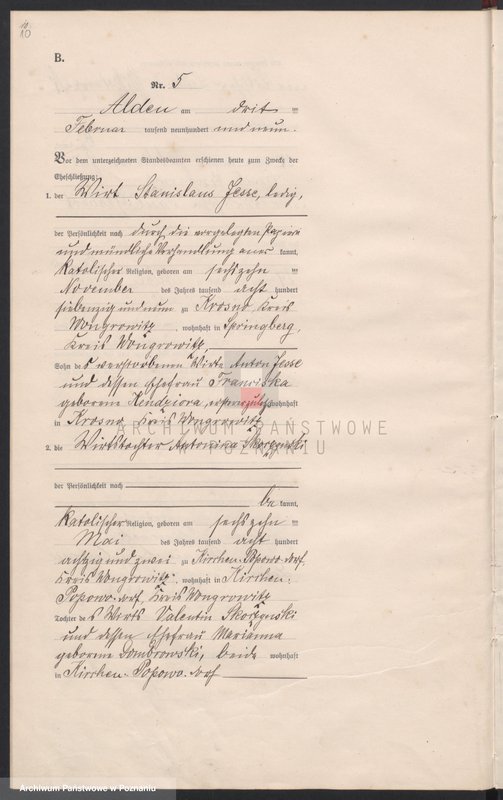 10
10
B.
Nr. 5
Alden am drit ten
Februar tausend neunhundert und neun.
Vor dem unterzeichneten Standesbeamten erschienen heute zum Zweck der
Eheschließung:
1. der Wirt Stanislaus Jesse, ledig,
der Persönlichkeit nach durch die vorgelegten Papiere
und mündliche Verhandlung aner kannt,
katolischer Religion, geboren am sechszehn ten
November des Jahres tausend acht hundert
siebenzig und nun zu Krosno Kreis
Wongrowitz, wohnhaft in Springberg,
Kreis Wongrowitz,
Sohn des verstorbenen Wirts Anton Jesse
und dessen Ehefrau Franziska
geborene Kendziora, wohnhaft
in Krosno, Kreis Wongrowitz
ARCHIWUM PAŃSTWOWE
W POZNANIU
2. die Wirtstochter Antonina Skorzynski
der Persönlichkeit nach
be kannt,
katolischer Religion, geboren am sechszehn ten
Mai des Jahres tausend acht hundert
achtzig und zwei zu Kirchen-Popowo-dorf,
Kreis Wongrowitz, wohnhaft in Kirchen-
Popowo-dorf, Kreis Wongrowitz
Tochter des Wirts Valentin Skorzynski
und dessen Ehefrau Marianna
geborene Dombrowski, beide wohnhaft
in Kirchen-Popowo-dorf
Archiwum Państwowe w Poznaniu